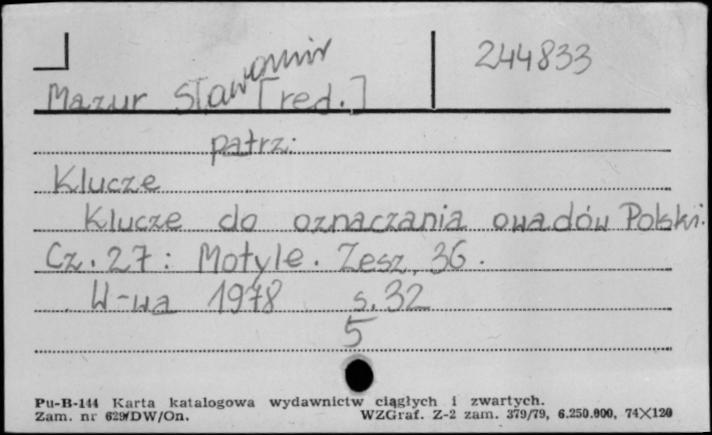 244833
Mazur Sławomir [red.]
patrz:
Klucze
Klucze do oznaczania owadów Polski.
Cz. 27: Motyle. Zesz. 36.
W-wa 1978 s. 32
5
Pu-B-144 Karta katalogowa wydawnictw ciągłych i zwartych.
Zam. nr 629/DW/On. WZGraf. Z-2 zam. 379/79, 6.250.000, 74×120